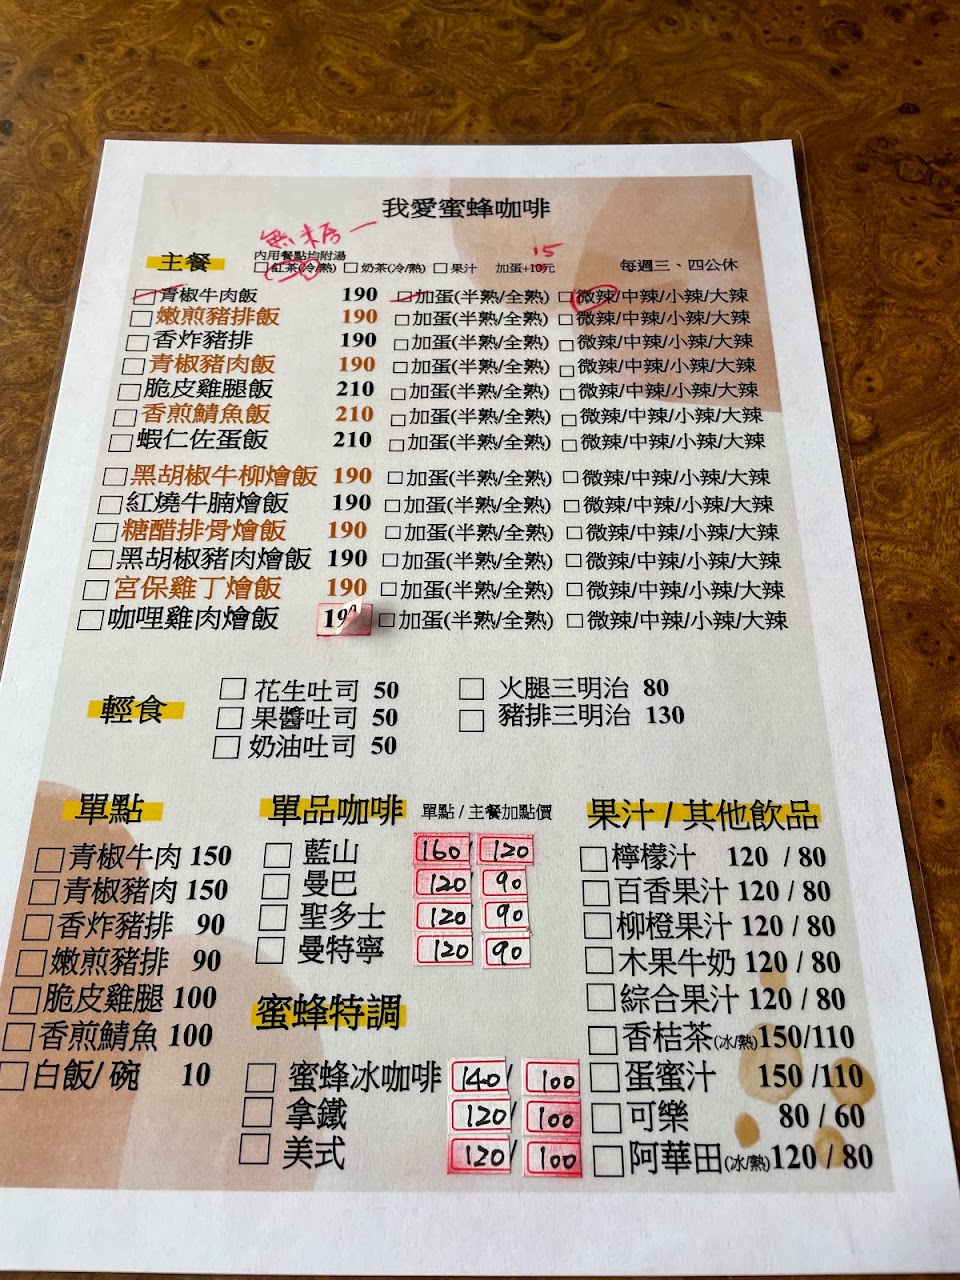 我愛蜜蜂咖啡
無糖
主餐
內用餐點均附湯
15
□紅茶(冷/熱) □奶茶(冷/熱) □果汁 加蛋+10元 每週三、四公休
□青椒牛肉飯 190 □加蛋(半熟/全熟) □微辣/中辣/小辣/大辣
□嫩煎豬排飯 190 □加蛋(半熟/全熟) □微辣/中辣/小辣/大辣
□香炸豬排 190 □加蛋(半熟/全熟) □微辣/中辣/小辣/大辣
□青椒豬肉飯 190 □加蛋(半熟/全熟) □微辣/中辣/小辣/大辣
□脆皮雞腿飯 210 □加蛋(半熟/全熟) □微辣/中辣/小辣/大辣
□香煎鯖魚飯 210 □加蛋(半熟/全熟) □微辣/中辣/小辣/大辣
□蝦仁佐蛋飯 210 □加蛋(半熟/全熟) □微辣/中辣/小辣/大辣
□黑胡椒牛柳燴飯 190 □加蛋(半熟/全熟) □微辣/中辣/小辣/大辣
□紅燒牛腩燴飯 190 □加蛋(半熟/全熟) □微辣/中辣/小辣/大辣
□糖醋排骨燴飯 190 □加蛋(半熟/全熟) □微辣/中辣/小辣/大辣
□黑胡椒豬肉燴飯 190 □加蛋(半熟/全熟) □微辣/中辣/小辣/大辣
□宮保雞丁燴飯 190 □加蛋(半熟/全熟) □微辣/中辣/小辣/大辣
□咖哩雞肉燴飯 190 □加蛋(半熟/全熟) □微辣/中辣/小辣/大辣
輕食
□花生吐司 50
□果醬吐司 50
□奶油吐司 50
□火腿三明治 80
□豬排三明治 130
單點
□青椒牛肉 150
□青椒豬肉 150
□香炸豬排 90
□嫩煎豬排 90
□脆皮雞腿 100
□香煎鯖魚 100
□白飯/碗 10
單品咖啡 單點 / 主餐加點價
□藍山 160/120
□曼巴 120/90
□聖多士 120/90
□曼特寧 120/90
蜜蜂特調
□蜜蜂冰咖啡 140/100
□拿鐵 120/100
□美式 120/100
果汁 / 其他飲品
□檸檬汁 120 / 80
□百香果汁 120 / 80
□柳橙果汁 120 / 80
□木果牛奶 120 / 80
□綜合果汁 120 / 80
□香桔茶(冰/熱)150/110
□蛋蜜汁 150 /110
□可樂 80 / 60
□阿華田(冰/熱)120 / 80